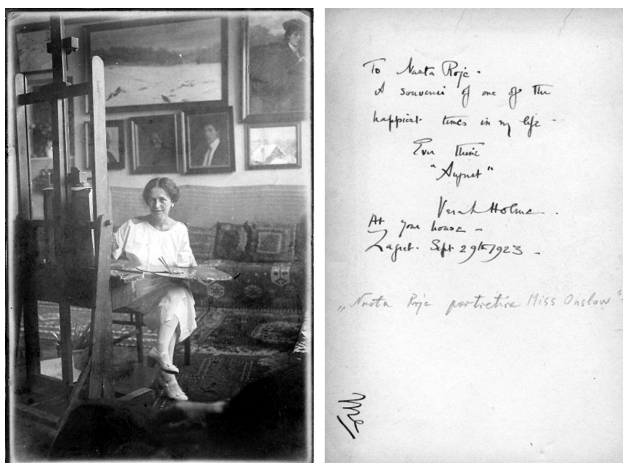 To Nasta Rojc.
A souvenir of one of the
happiest times in my life -
Ever Thine
"August"
Vera Holme.
At your house -
Zagreb. Sept 29th 1923 -
„Nasta Rojc portretira Miss Onslow"
Me